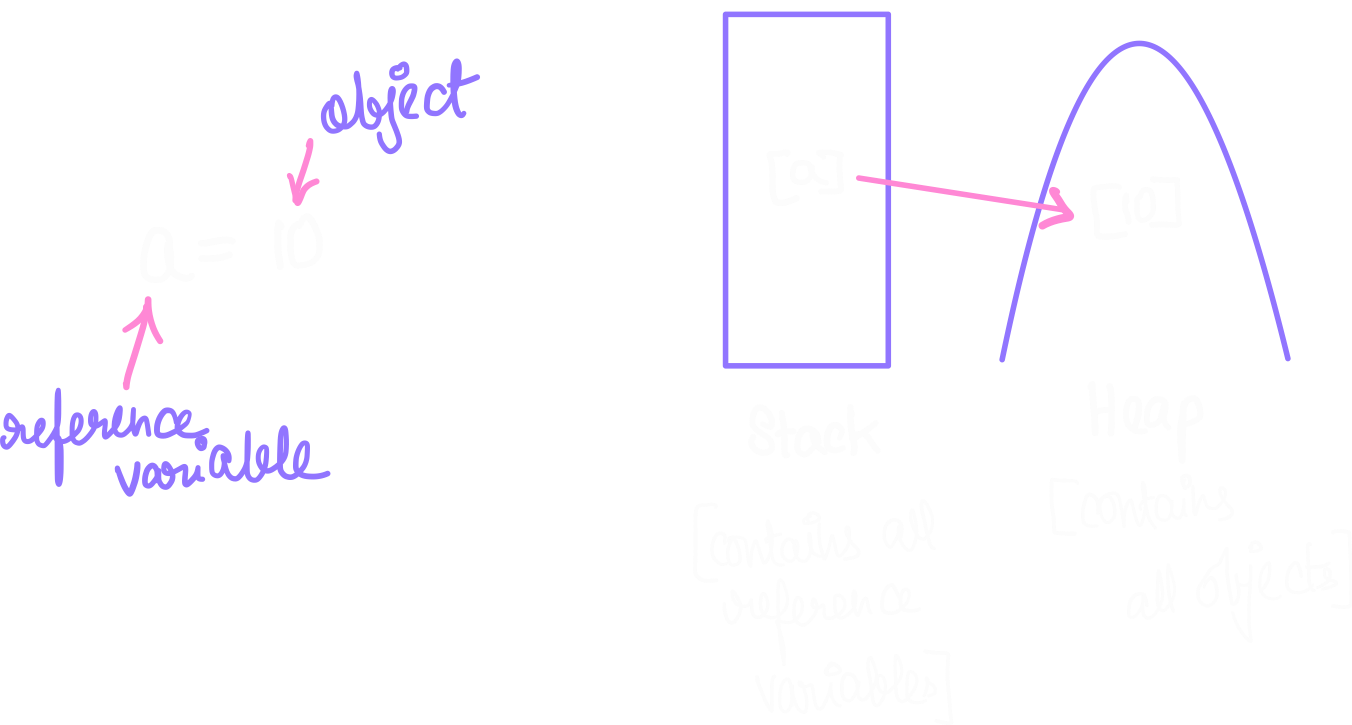 object
a = 10
reference
variable
[a]
[10]
Stack
[contains all
reference
variables]
Heap
[contains
all objects]